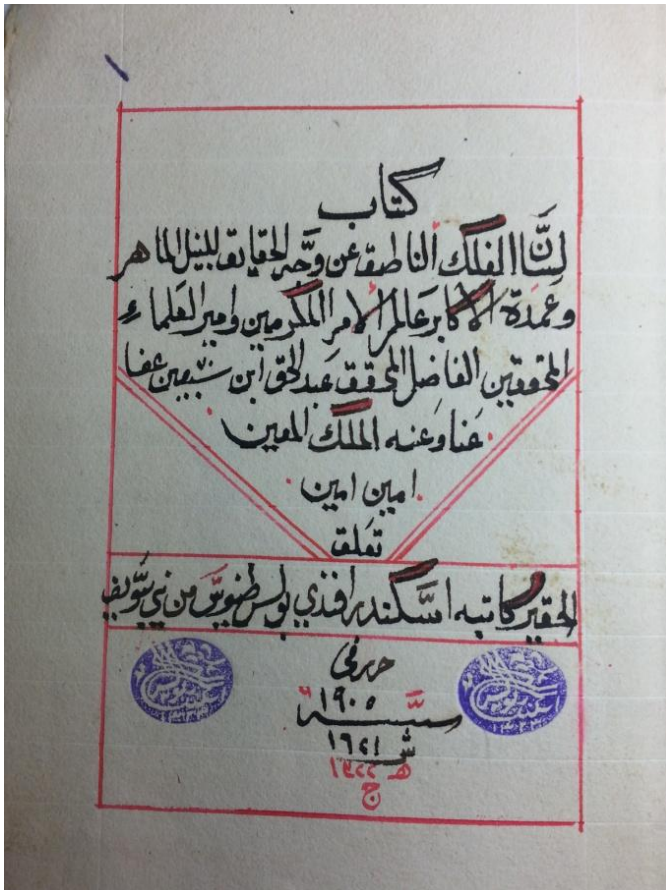 ١
كتاب
لسان الفلك الناطق عن وجه الحقايق للنيل الماهر
وعمدة الاكابر عالم الامر المكرمين وامير العلماء
المحققين الفاضل المحقق عبد الحق ابن سبعين ٧٠ عفا
عنا وعنه الملك المعين
امين امين
تعلق
الحقير كاتبه اسكندر افندي بولس طنويس من بني سويف
حرر في
سنة ١٩٠٥
ش ١٦٢١
ه ١٣٢٢
ج